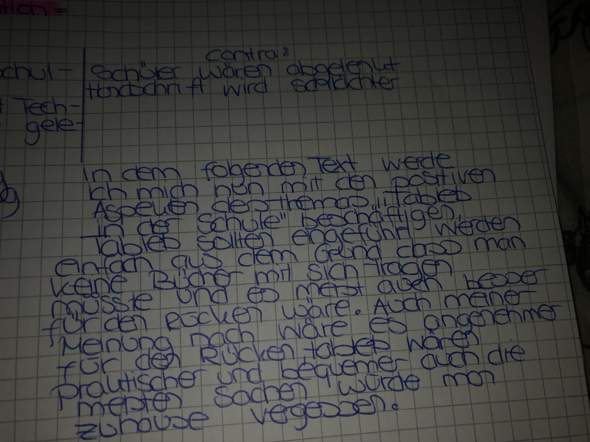 contra:
Schüler wären abgelenkt
Handschrift wird schlechter
chul-
Tech-
gele-
In dem folgenden Text werde
ich mich nun mit den positiven
Aspekten des Themas "Tablets
in der Schule" beschäftigen.
Tablets sollten eingeführt werden
einfach aus dem Grund dass man
keine Bücher mit sich tragen
müsste und es meist auch besser
für den Rücken wäre. Auch meiner
Meinung nach wäre es angenehmer
für den Rücken. Tablets wären
praktischer und bequemer auch die
meisten Sachen würde man
zuhause vergessen.